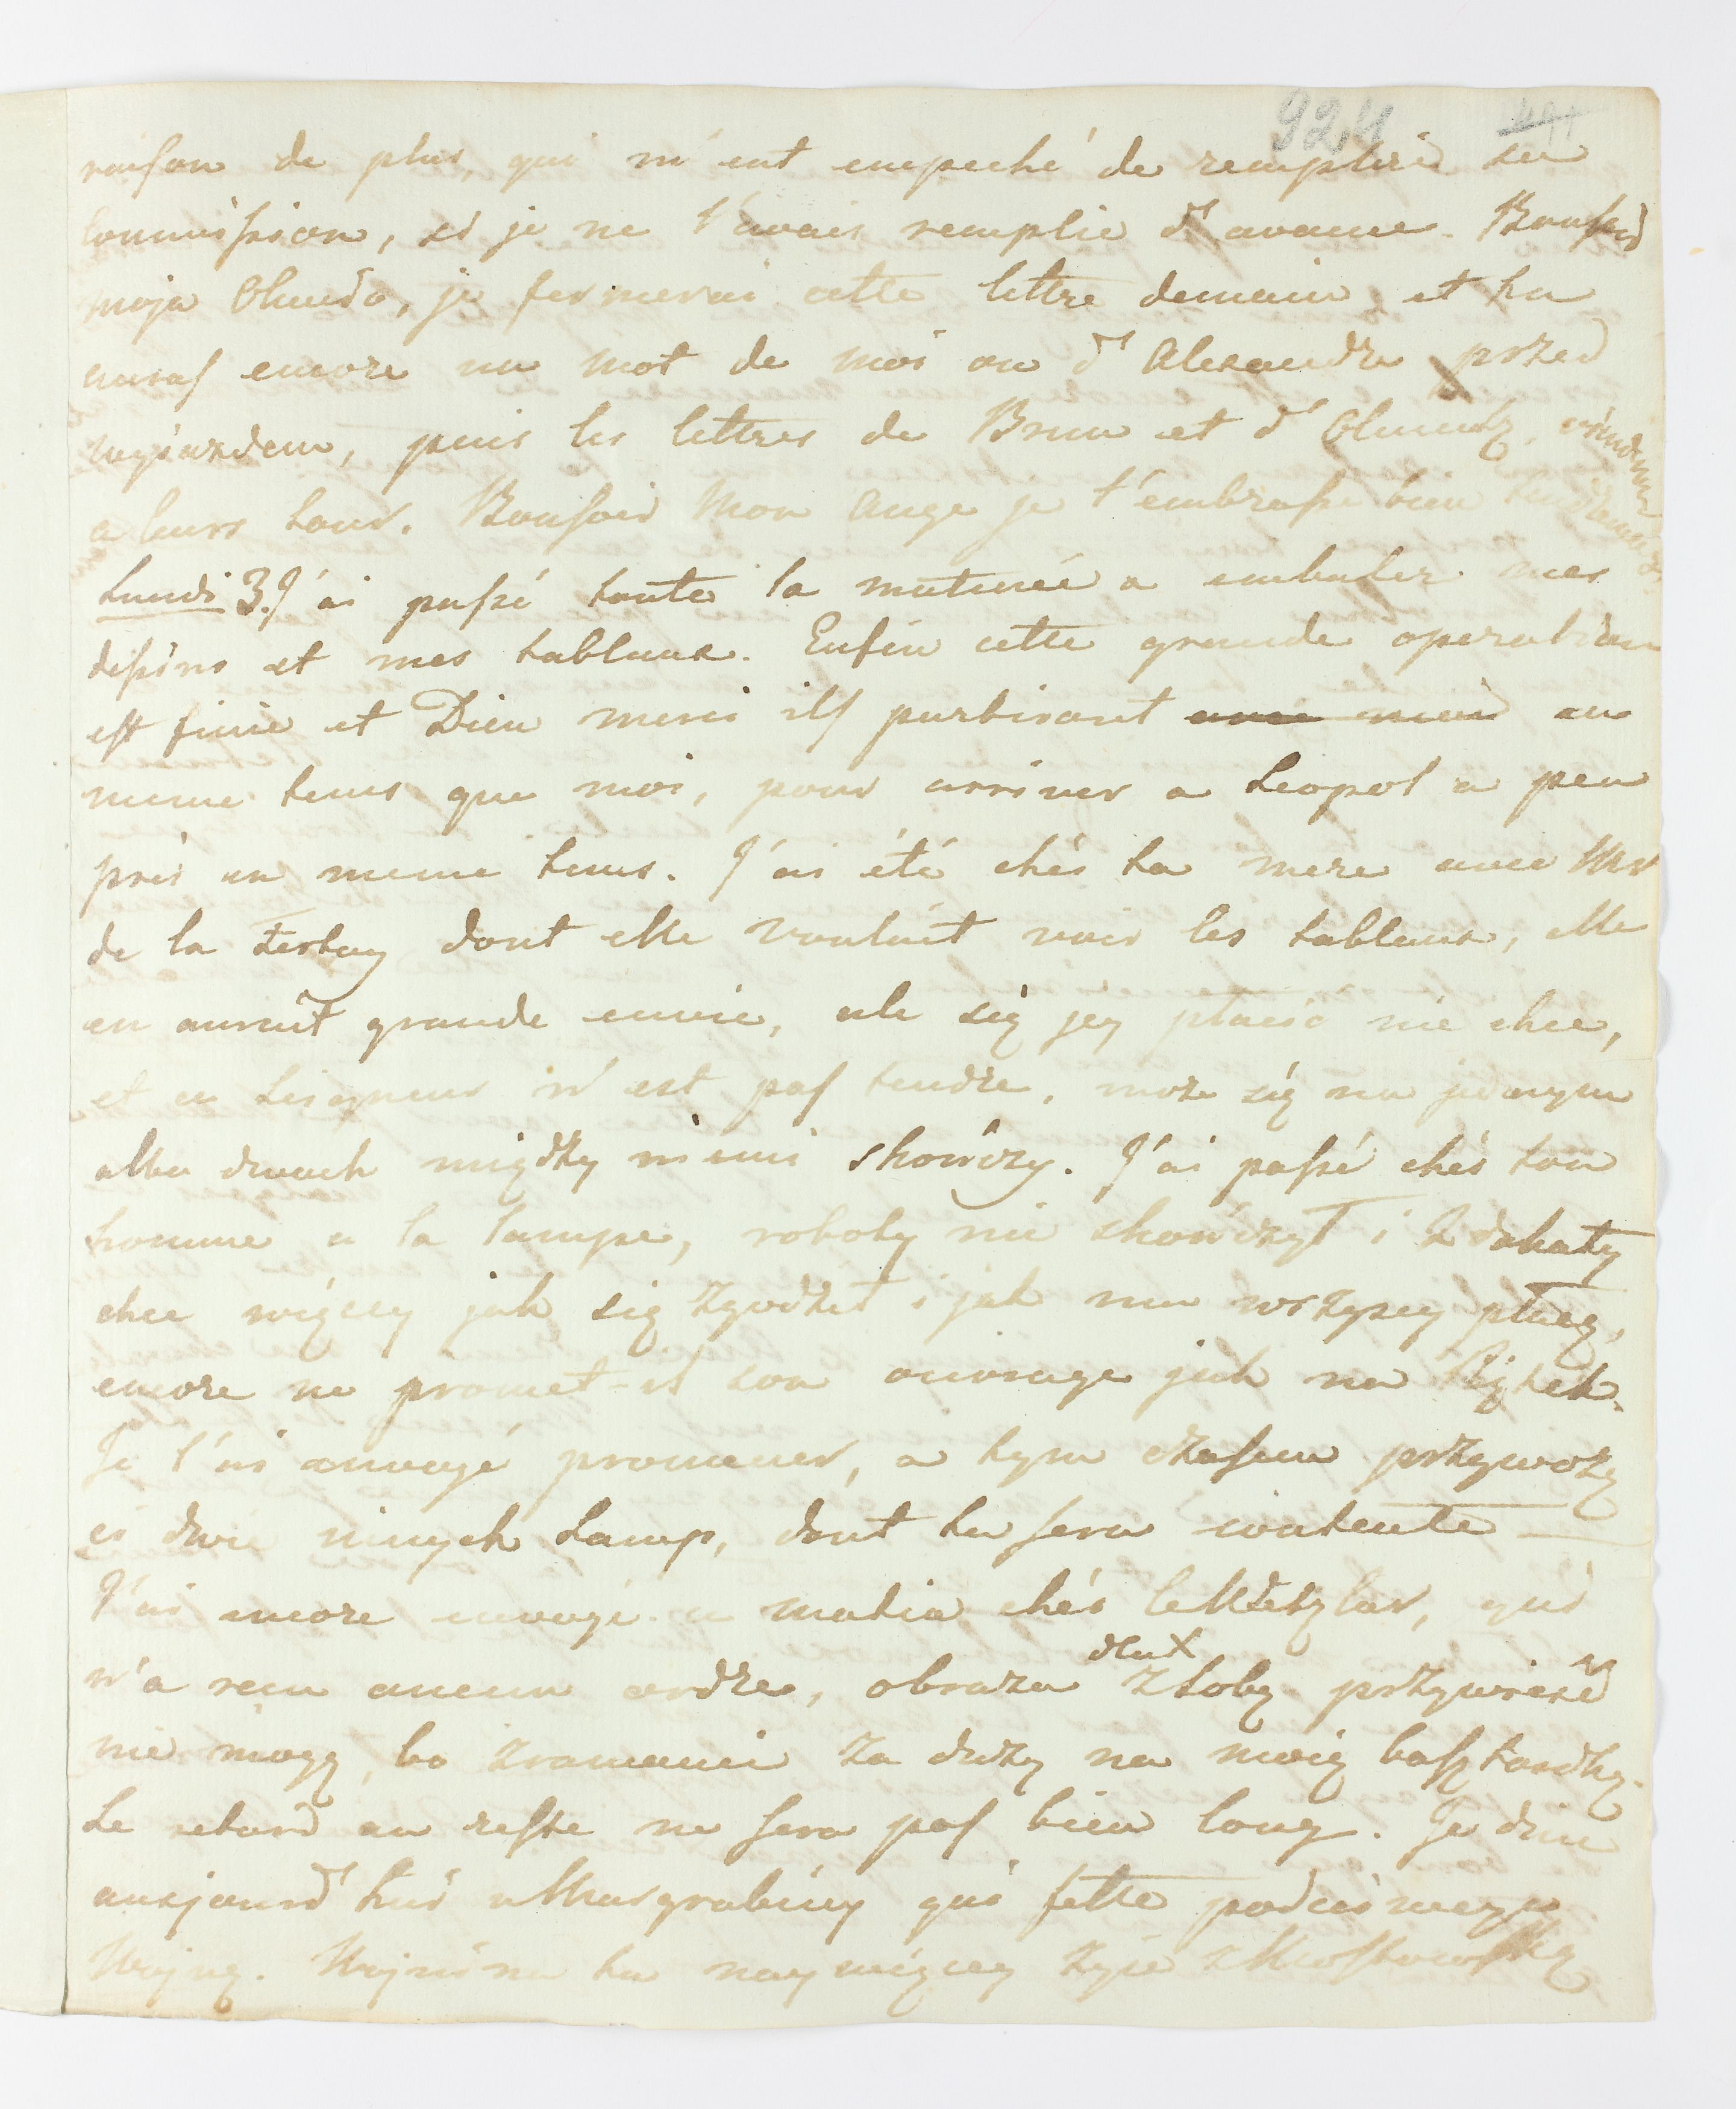 924
raison de plus, qui m'eut empeché de remplire sa
commission, si je ne l'avais remplie d'avance. Bonsoir
moja Chuda, je fermerai cette lettre demain, et tu
auras encore un mot de moi ou d'Alexandre przed
wyiazdem, puis les lettres de Brun et d'Olmutz, viendront
a leurs tour. Bonsoir Mon Ange je t'embrasse bien tendrement
Lundi 3. J'ai passé toute la matineé a embaler mes
dessins et mes tableaux. Enfin cette grande operation
est finie et Dieu merci ils partiront avec moi au
meme tems que moi, pour arriver a Leopol a peu
près en meme tems. J'ai été chés ta mere avec Mr
de la Festay dont elle voulait voir les tableaux, elle
en aurait grande envie, ale się jey płacić nie chce,
et ce Seigneur n'est pas tendre, może się na jednym
albo dwuch między niemi skończy. J'ai passé chés ton
homme a la lampe, roboty nie skończył i dukaty
chce więcey jak się zgodził i jak mu wszyscy płacą,
encore ne promet-il son ouvrage jak na Piątek.
Je l'ai envoyé promener, a tym czasem przywożę
ci dwie innych Lamp, dont tu sera contente —
J'ai encore envoyé ce matin chés le , qui
n'a reçu aucun ordre, obrazu deux z sobą przywieść
nie mogę, bo z ramami za duży na moię basztardkę.
Le retard au reste ne sera pas bien long. Je dine
aujourd'hui u Margrabiny qui fette podcius
Woynę. Woynina tu naywięcey żyie z Mostowską